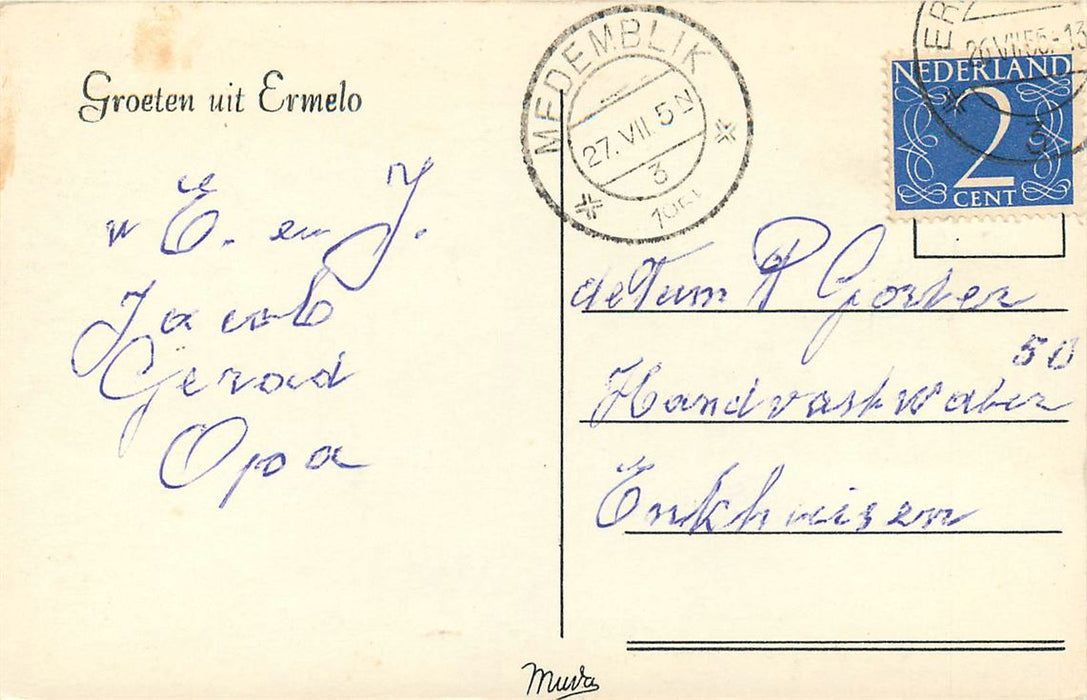 Groeten uit Ermelo
v E. en J.
Jacob
Gerard
Opa
MEDEMBLIK
27.VII.5 N
3
195
ER
26.VII.55.-13
3
NEDERLAND
2
CENT
de Fam P Gorter
50
Handvastwater
Enkhuisen
Muva